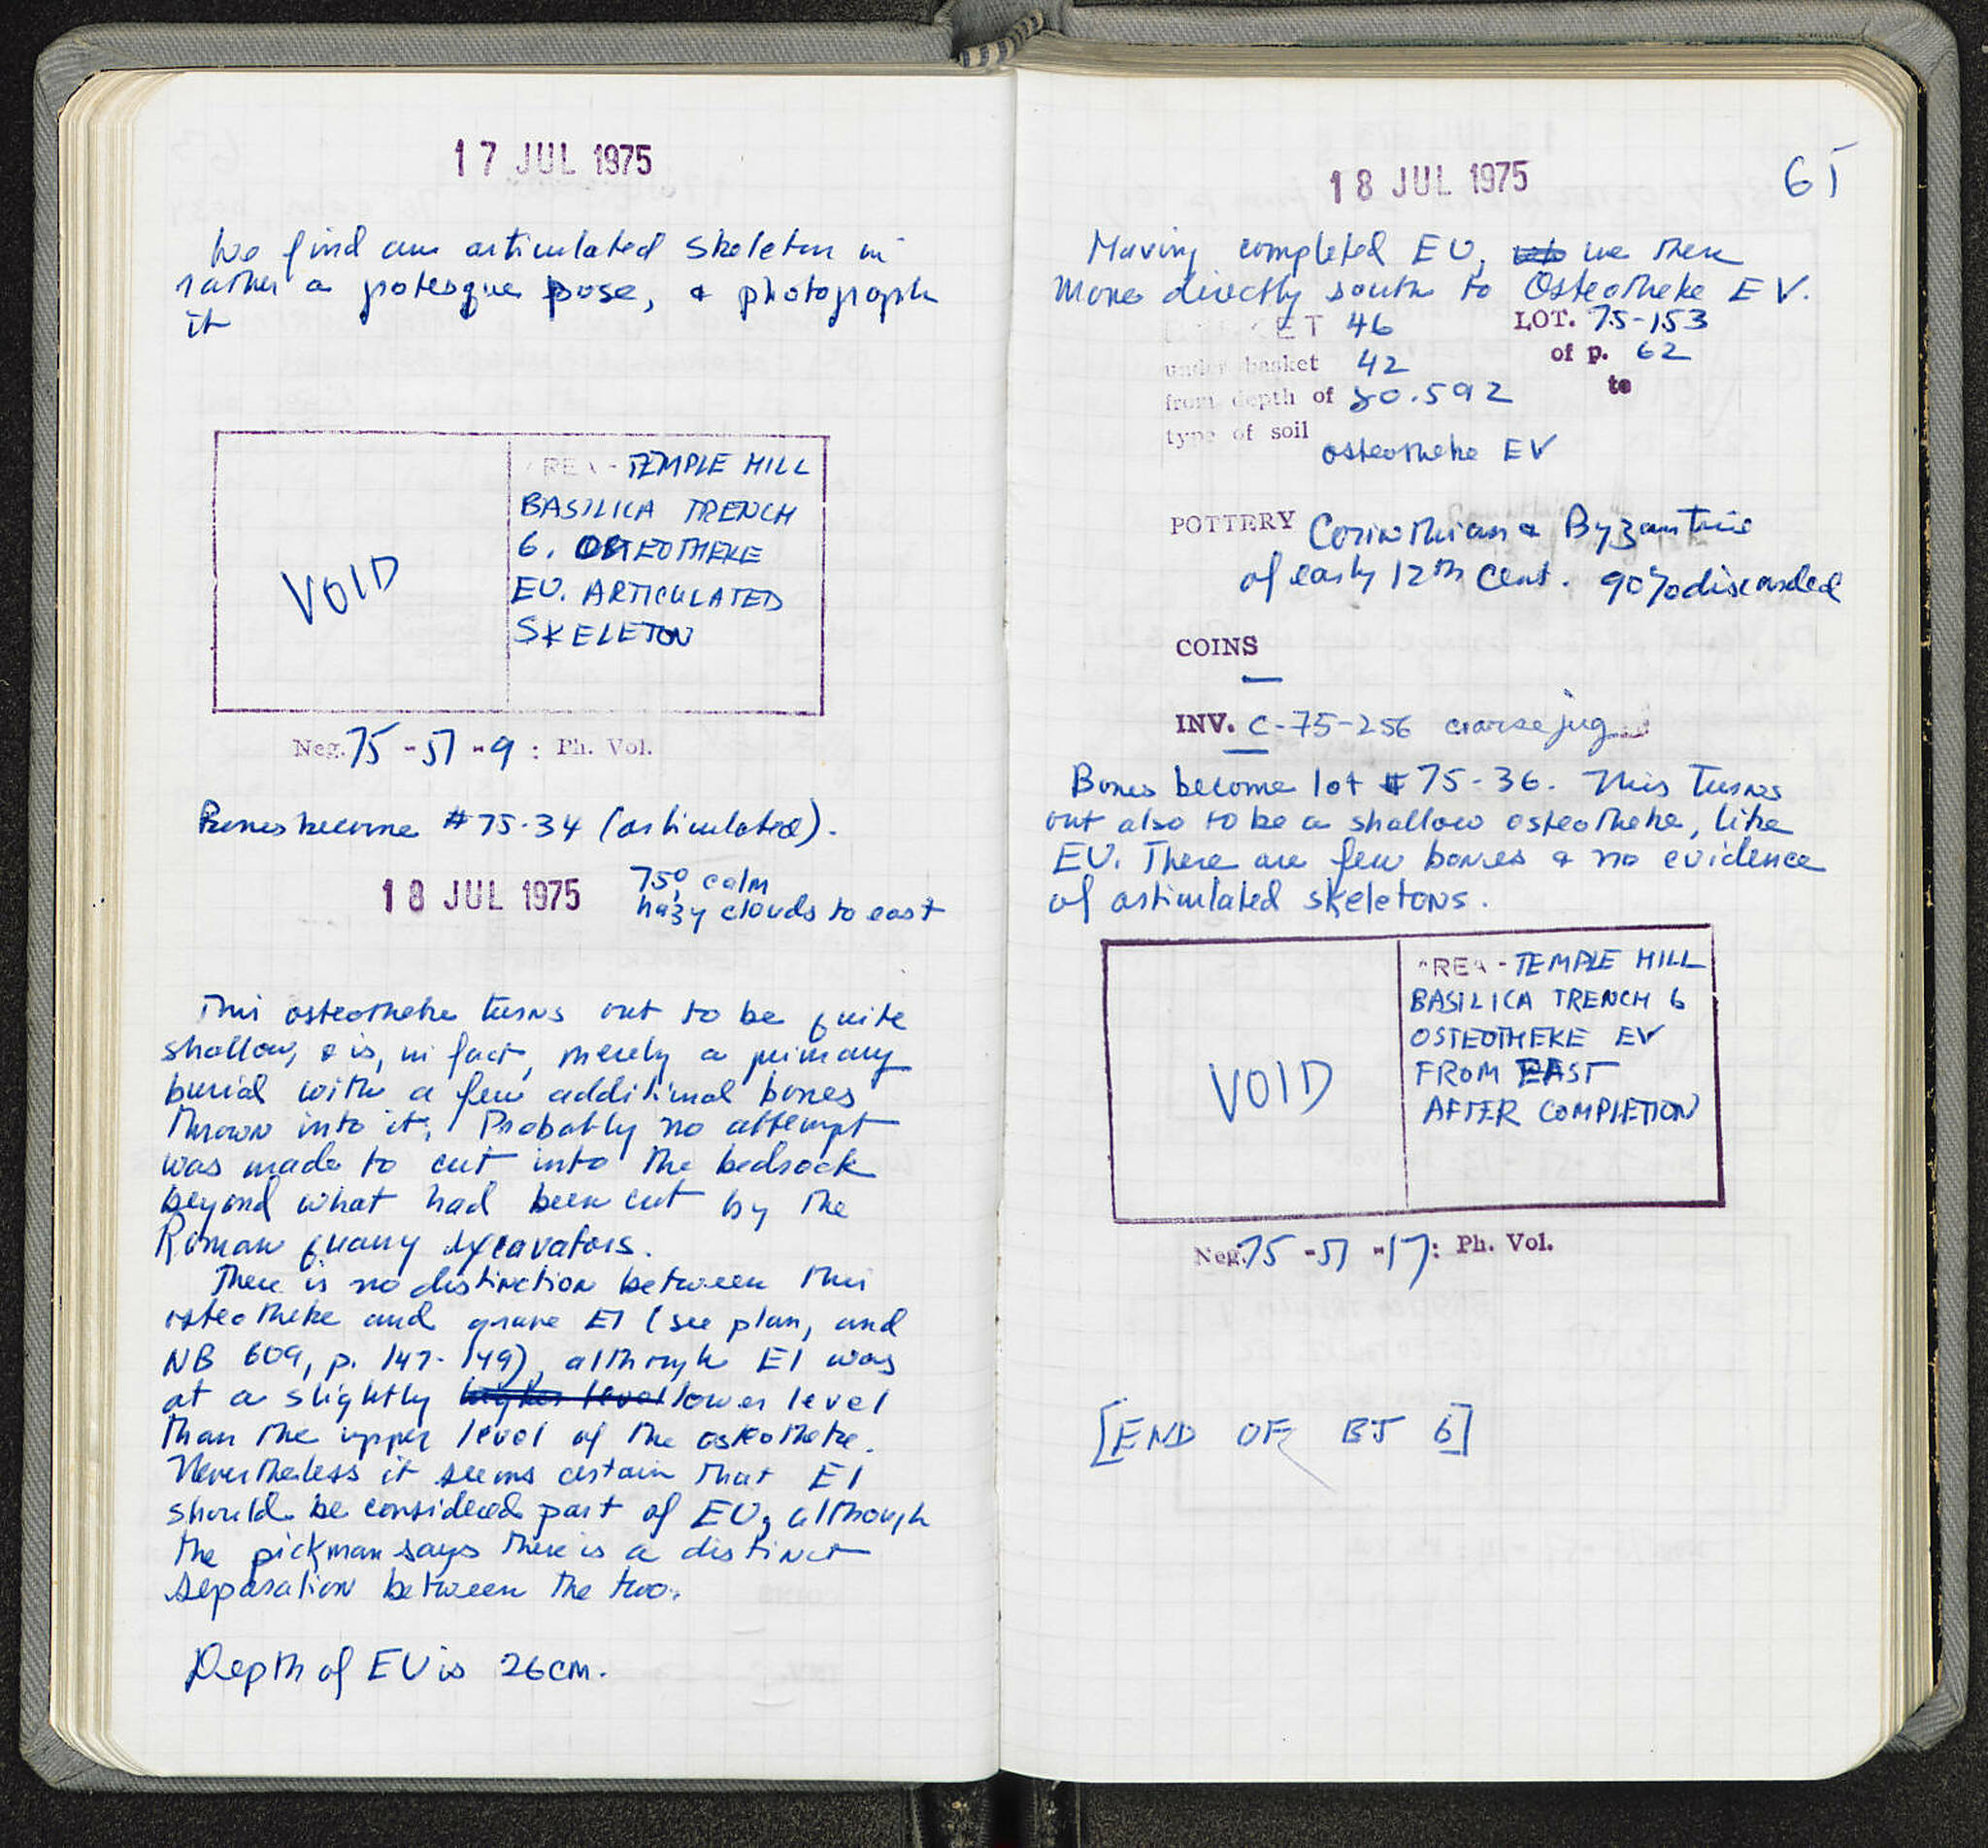 17 JUL 1975
We find an articulated skeleton in
rather a grotesque pose, & photograph
it
AREA - TEMPLE HILL
BASILICA TRENCH
6. OSTEOTHEKE
EU. ARTICULATED
SKELETON
VOID
Neg. 75-57-9 : Ph. Vol.
Bones become #75-34 (articulated).
18 JUL 1975
75° calm
hazy clouds to east
This osteotheke turns out to be quite
shallow, & is, in fact, merely a primary
burial with a few additional bones
thrown into it. Probably no attempt
was made to cut into the bedrock
beyond what had been cut by the
Roman quarry excavators.
There is no distinction between this
osteotheke and grave EI (see plan, and
NB 609, p. 147-149), although EI was
at a slightly higher level lower level
than the upper level of the osteotheke.
Nevertheless it seems certain that EI
should be considered part of EU, although
the pickman says there is a distinct
separation between the two.
Depth of EU is 26cm.
18 JUL 1975
65
Having completed EU, we then
move directly south to Osteotheke EV.
BASKET 46
LOT. 75-153
under basket 42
of p. 62
from depth of 80.592
to
type of soil
osteotheke EV
POTTERY Corinthian & Byzantine
of early 12th cent. 90% discarded
COINS
—
INV. C-75-256 coarse jug
Bones become lot #75-36. This turns
out also to be a shallow osteotheke, like
EU. There are few bones & no evidence
of articulated skeletons.
AREA - TEMPLE HILL
BASILICA TRENCH 6
OSTEOTHEKE EV
FROM EAST
AFTER COMPLETION
VOID
Neg. 75-57-17: Ph. Vol.
[END OF BT 6]